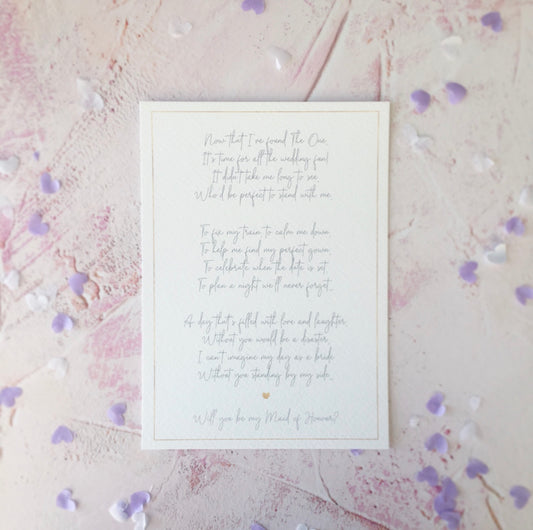 Now that I've found The One,
It's time for all the wedding fun!
It didn't take me long to see,
Who'd be perfect to stand with me.
To fix my train to calm me down
To help me find my perfect gown
To celebrate when the date is set
To plan a night we'll never forget...
A day that's filled with love and laughter
Without you would be a disaster
I can't imagine my day as a bride
Without you standing by my side...
Will you be my Maid of Honour?